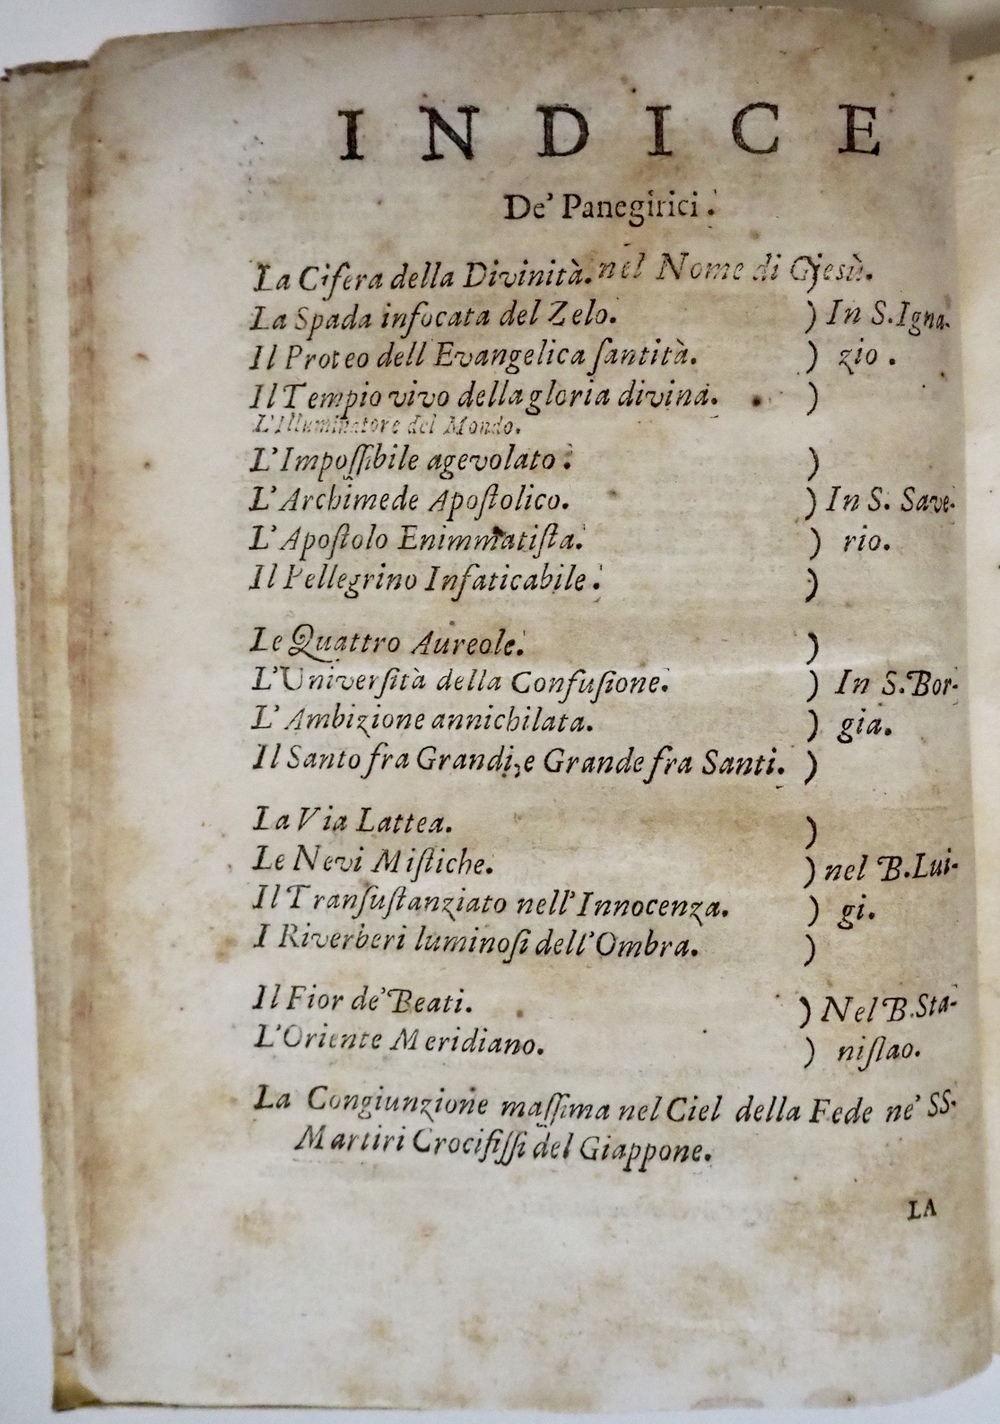 INDICE
De' Panegirici.
La Cifera della Divinità. nel Nome di Giesù.
La Spada infocata del Zelo. ) In S. Igna-
Il Proteo dell Evangelica ſantità. ) zio.
Il Tempio vivo della gloria divina. )
L'Illuminatore del Mondo.
L'Impoſſibile agevolato. )
L'Archimede Apoſtolico. ) In S. Save-
L'Apoſtolo Enimmatiſta. ) rio.
Il Pellegrino Infaticabile. )
Le Quattro Aureole. )
L'Univerſità della Confuſione. ) In S. Bor-
L'Ambizione annichilata. ) gia.
Il Santo fra Grandi, e Grande fra Santi. )
La Via Lattea. )
Le Nevi Miſtiche. ) nel B. Lui-
Il Tranſuſtanziato nell'Innocenza. ) gi.
I Riverberi luminoſi dell'Ombra. )
Il Fior de' Beati. ) Nel B. Sta-
L'Oriente Meridiano. ) niſlao.
La Congiunzione maſſima nel Ciel della Fede ne' SS.
Martiri Crocifiſſi del Giappone.
LA